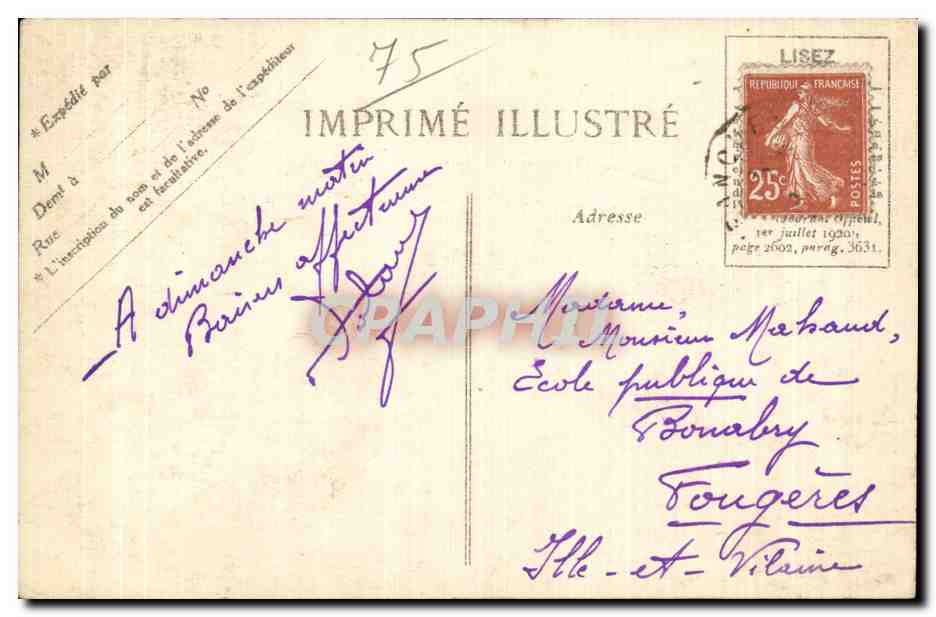 75
* Expédié par
M
No
Demt à
Rue
* L'inscription du nom et de l'adresse de l'expéditeur
est facultative.
IMPRIMÉ ILLUSTRÉ
LISEZ
REPUBLIQUE FRANÇAISE
25c
POSTES
Journal officiel,
1er juillet 1920,
page 2602, parag. 3631.
Adresse
A dimanche matin
Baisers affectueux
CPAPHIL
Madame,
Monsieur Mahaud,
École publique de
Bonabry
Fougères
Ille-et-Vilaine